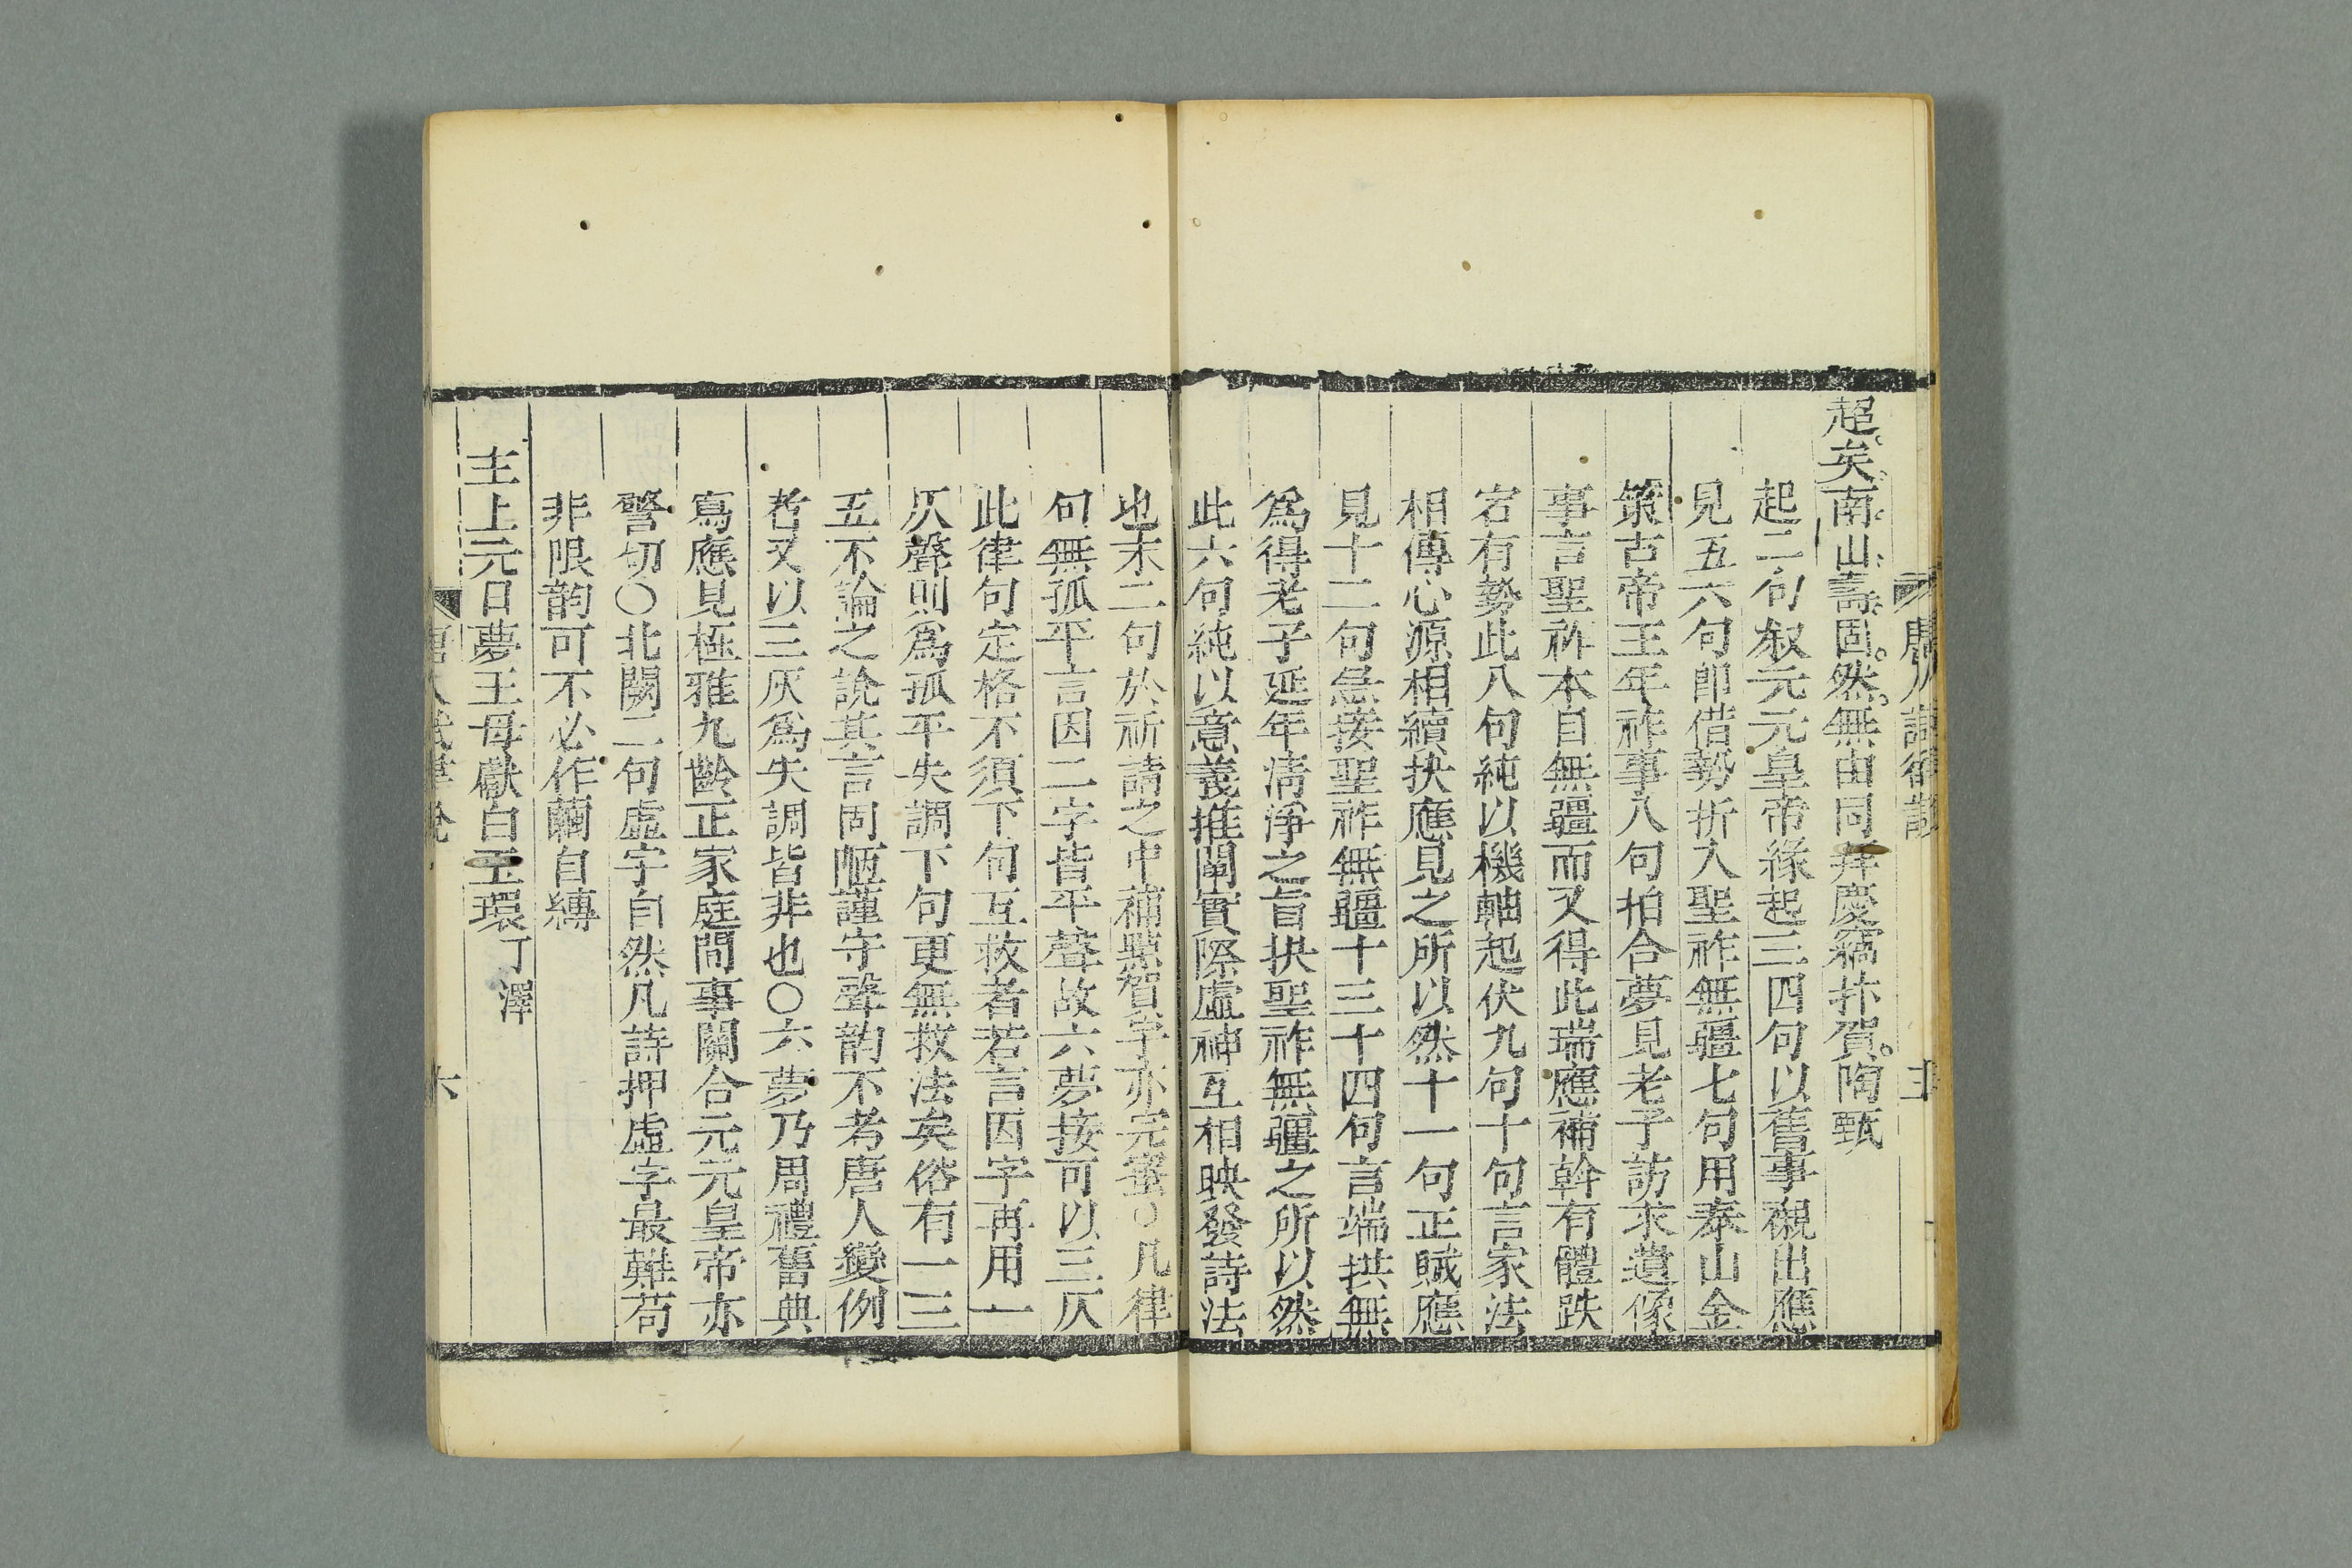 超矣南山壽固然無由同拜慶竊抃賀陶甄
起二句叙元元皇帝緣起三四句以舊事襯出應
見五六句卽借勢折入聖祚無疆七句用泰山金
策古帝王年祚事八句拍合夢見老子訪求遺像
事言聖祚本自無疆而又得此瑞應補幹有體跌
宕有勢此八句純以機軸起伏九句十句言家法
相傳心源相續抉應見之所以然十一句正賦應
見十二句急接聖祚無疆十三十四句言端拱無
爲得老子延年淸淨之旨抉聖祚無疆之所以然
此六句純以意義推闡實際虛神互相映發詩法
也末二句於祈請之中補點賀字亦完密○凡律
句無孤平言因二字皆平聲故六夢接可以三仄
此律句定格不須下句互救者若言因字再用一
仄聲則爲孤平失調下句更無救法矣俗有一三
五不論之說其言固陋謹守聲韵不考唐人變例
者又以三灰爲失調皆非也○六夢乃周禮舊典
寫應見極雅九齡正家庭間事關合元元皇帝亦
警切○北闕二句虛字自然凡詩押虛字最難苟
非限韵可不必作繭自縛
主上元日夢王母獻白玉環 丁澤
六